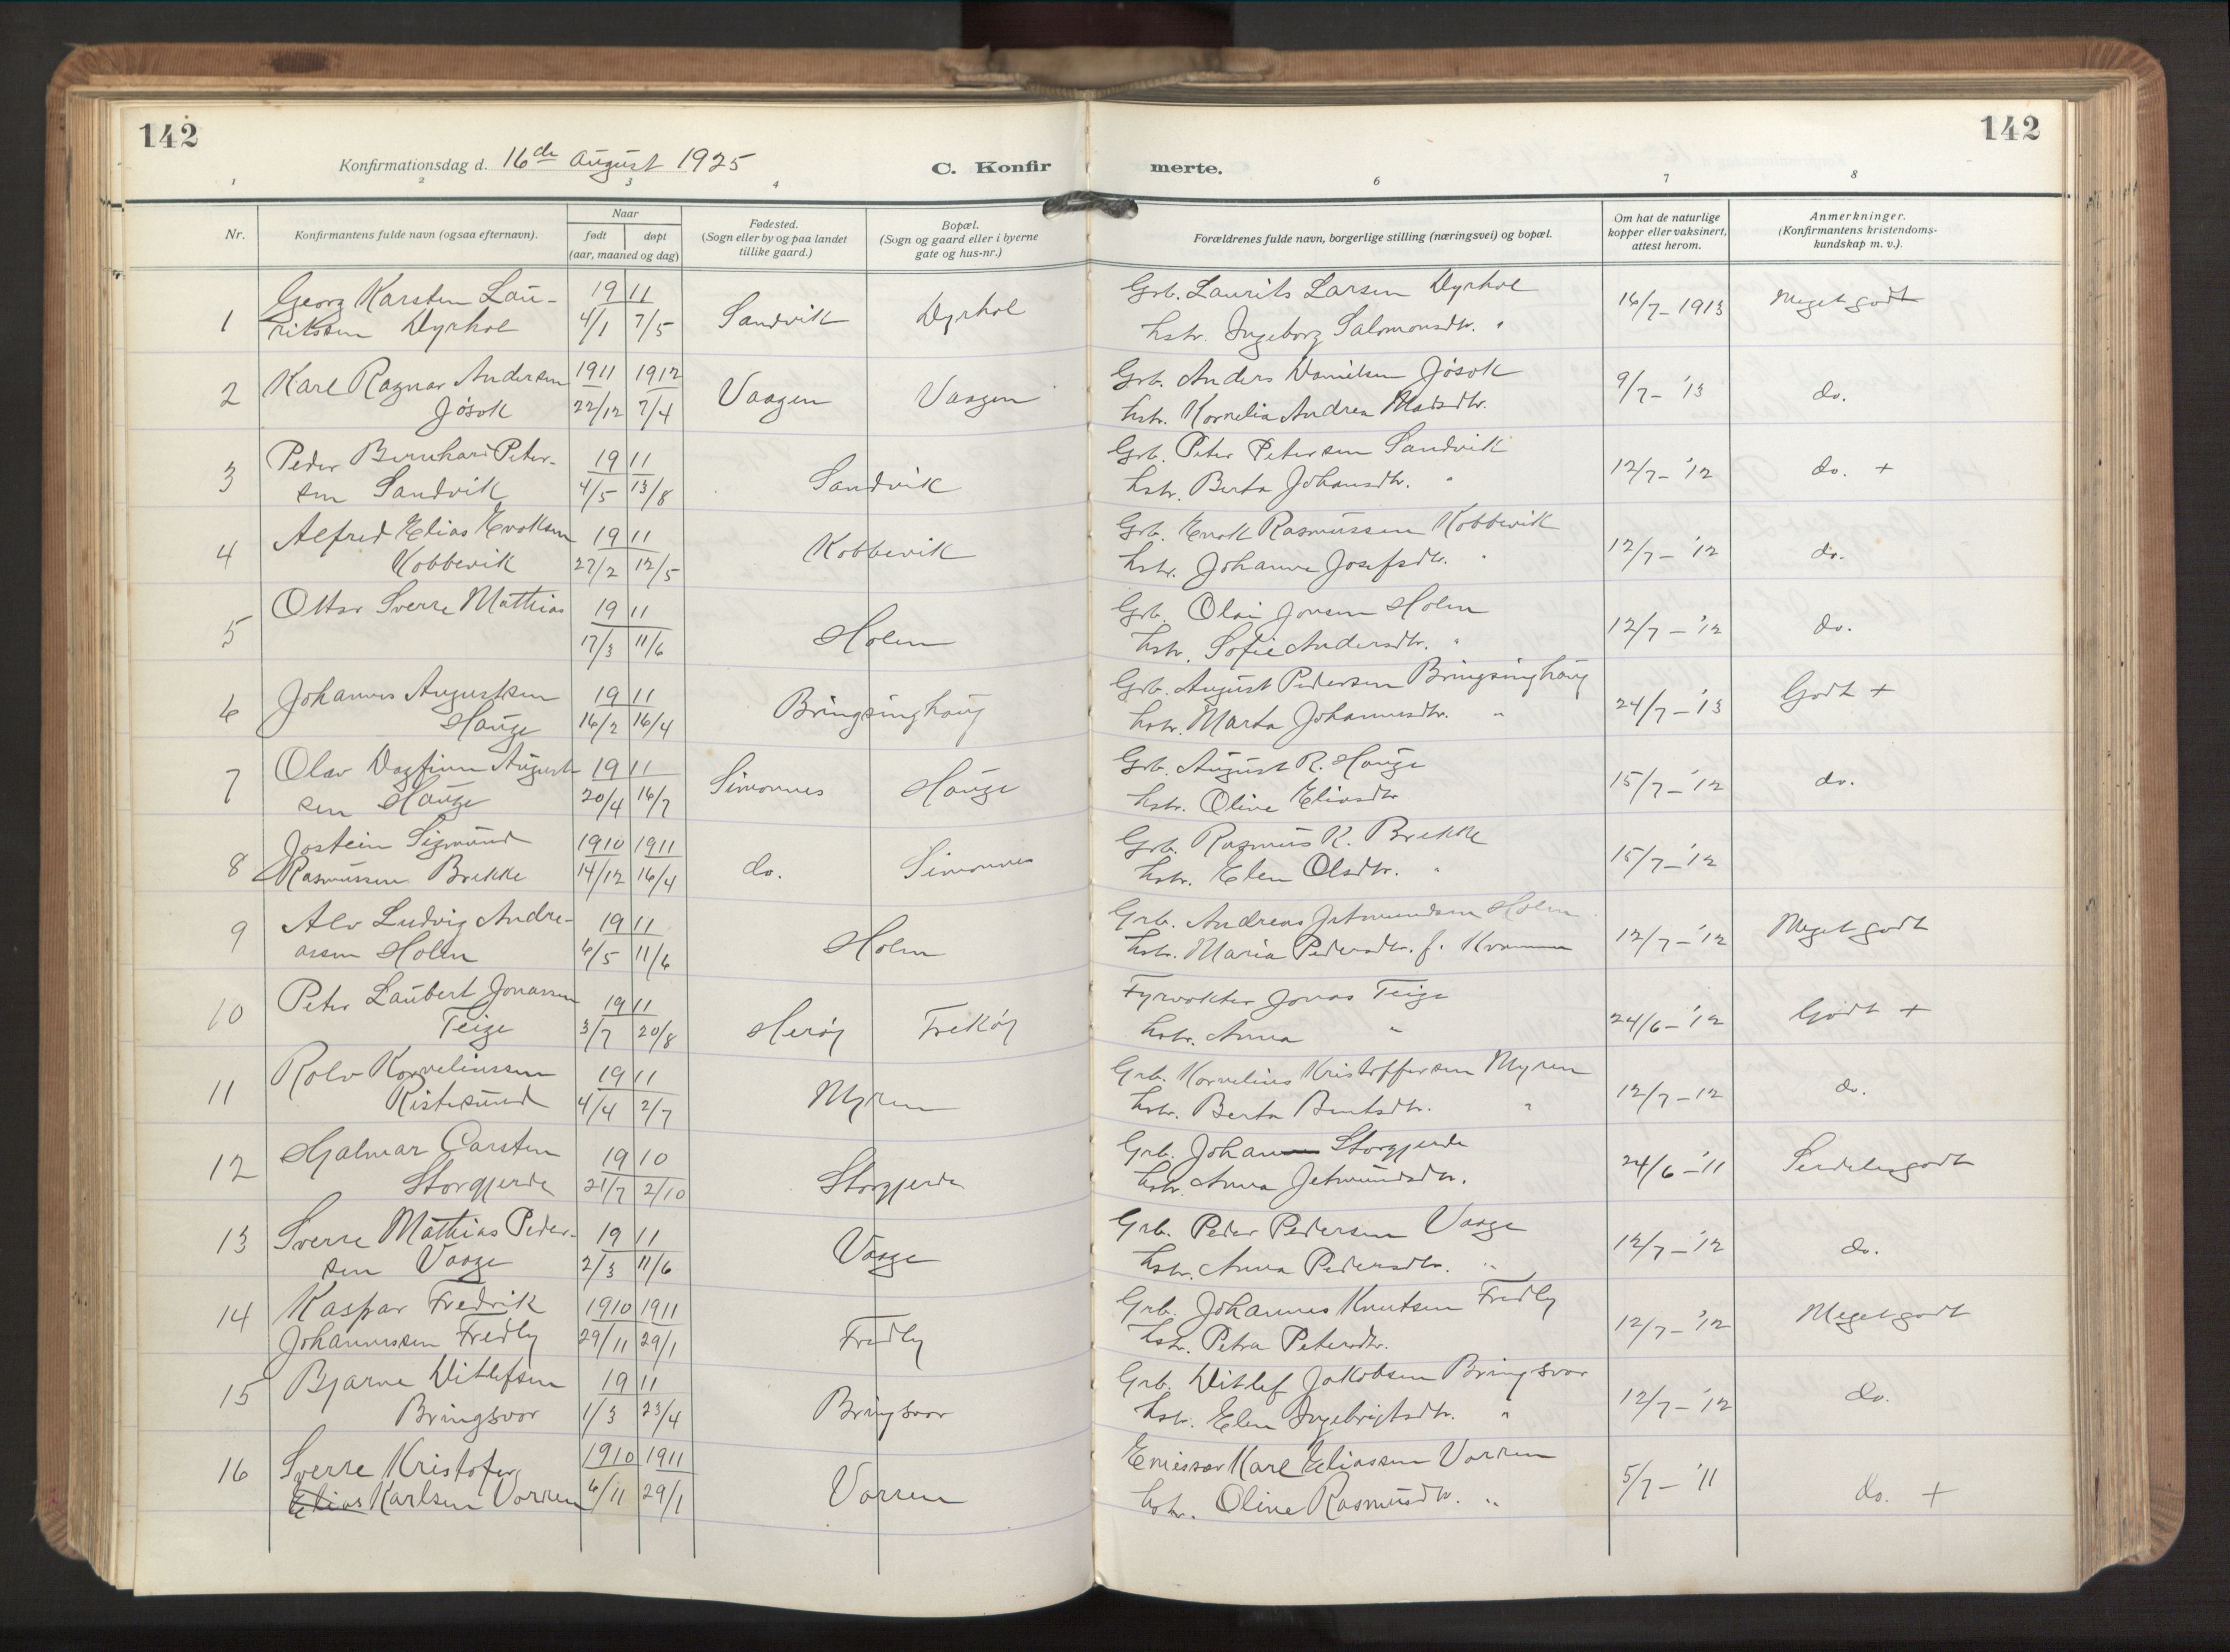 142
142
Konfirmationsdag d. 16de august 1925
C. Konfir
merte.
1 2 3 4 6 7 8
Nr.
Konfirmantens fulde navn (ogsaa efternavn).
Naar
født døpt
(aar, maaned og dag)
Fødested.
(Sogn eller by og paa landet
tillike gaard.)
Bopæl.
(Sogn og gaard eller i byerne
gate og hus-nr.)
Forældrenes fulde navn, borgerlige stilling (næringsvei) og bopæl.
Om hat de naturlige
kopper eller vaksinert,
attest herom.
Anmerkninger.
(Konfirmantens kristendoms-
kundskap m. v.).
Georg Karsten Lau- 19 11 Grb. Laurits Larsen Dyrhol
1 ritssen Dyrhol 4/1 7/5 Sandvik Dyrhol hstr. Ingeborg Salomonsdtr. " 16/7-1913 Meget godt
Karl Ragnar Andersen 1911 1912 Grb. Anders Danielsen Jøsok
2 Jøsok 22/12 7/4 Vaagen Vaagen hstr. Kornelia Andrea Madsdtr. 9/7-'13 do.
Peder Bernhard Peter- 19 11 Grb. Peter Petersen Sandvik
3 sen Sandvik 4/5 13/8 Sandvik hstr. Berta Johansdtr. " 12/7-'12 do. +
Alfred Elias Enoksen 19 11 Grb. Enok Rasmussen Kobbevik
4 Kobbevik 27/2 12/5 Kobbevik hstr. Johanne Josefsdtr. " 12/7-'12 do.
Ottar Sverre Mathias 19 11 Grb. Olai Jonsen Holm
5 17/3 11/6 Holm hstr. Sofie Andersdtr. " 12/7-'12 do.
Johannes Augustsen 19 11 Grb. August Pedersen Bringsinghaug
6 Hauge 16/2 16/4 Bringsinghaug hstr. Marta Johannesdtr. " 24/7-'13 Godt +
Olav Dagfinn August- 19 11 Grb. August R. Hauge
7 sen Hauge 20/4 16/7 Simonnes Hauge hstr. Oline Eliasdtr 15/7-'12 do.
Jostein Sigmund 1910 1911 Grb. Rasmus K. Brekke
8 Rasmussen Brekke 14/12 16/4 do. Simonnes hstr. Elen Olsdtr. " 15/7-'12
Alv Ludvig Andre- 19 11 Grb. Andreas Jetmundsen Holm
9 assen Holm 6/5 11/6 Holm hstr. Maria Pedersdtr. f. Kvamme 12/7-'12 Meget godt
Peter Laubert Jonassen 19 11 Fyrvokter Jonas Teige
10 Teige 3/7 20/8 Herøy Frekøy hstr. Anna " 24/6-'12 Godt +
Rolv Korneliussen 19 11 Grb. Kornelius Kristoffersen Myren
11 Ristesund 4/4 2/7 Myren hstr. Berta Bentsdtr. " 12/7-12 do.
Hjalmar Carsten 19 10 Grb. Johan Storgjerde
12 Storgjerde 21/7 2/10 Storgjerde hstr. Anna Jetmundsdtr. 24/6-'11 Serdeles godt
13 Sverre Mathias Peder- 19 11 Grb. Peder Pedersen Vaage
sen Vaage 2/3 11/6 Vaage hstr. Anna Pedersdtr. " 12/7-'12 do.
14 Kaspar Fredrik 1910 1911 Grb. Johannes Knutsen Fredly
Johannessen Fredly 29/11 29/1 Fredly hstr. Petra Petersdtr. 12/7-'12 Meget godt
15 Bjarne Ditlefsen 19 11 Grb. Ditlef Jakobsen Bringsvor
Bringsvor 1/3 23/4 Bringsvor hstr. Elen Ingebrigtsdtr. " 12/7-'12 do.
16 Sverre Kristofer 1910 1911 Emissær Karl Eliassen Vorren
Elias Karlsen Vorren 6/11 29/1 Vorren hstr. Oline Rasmusdtr. " 5/7-'11 do. +